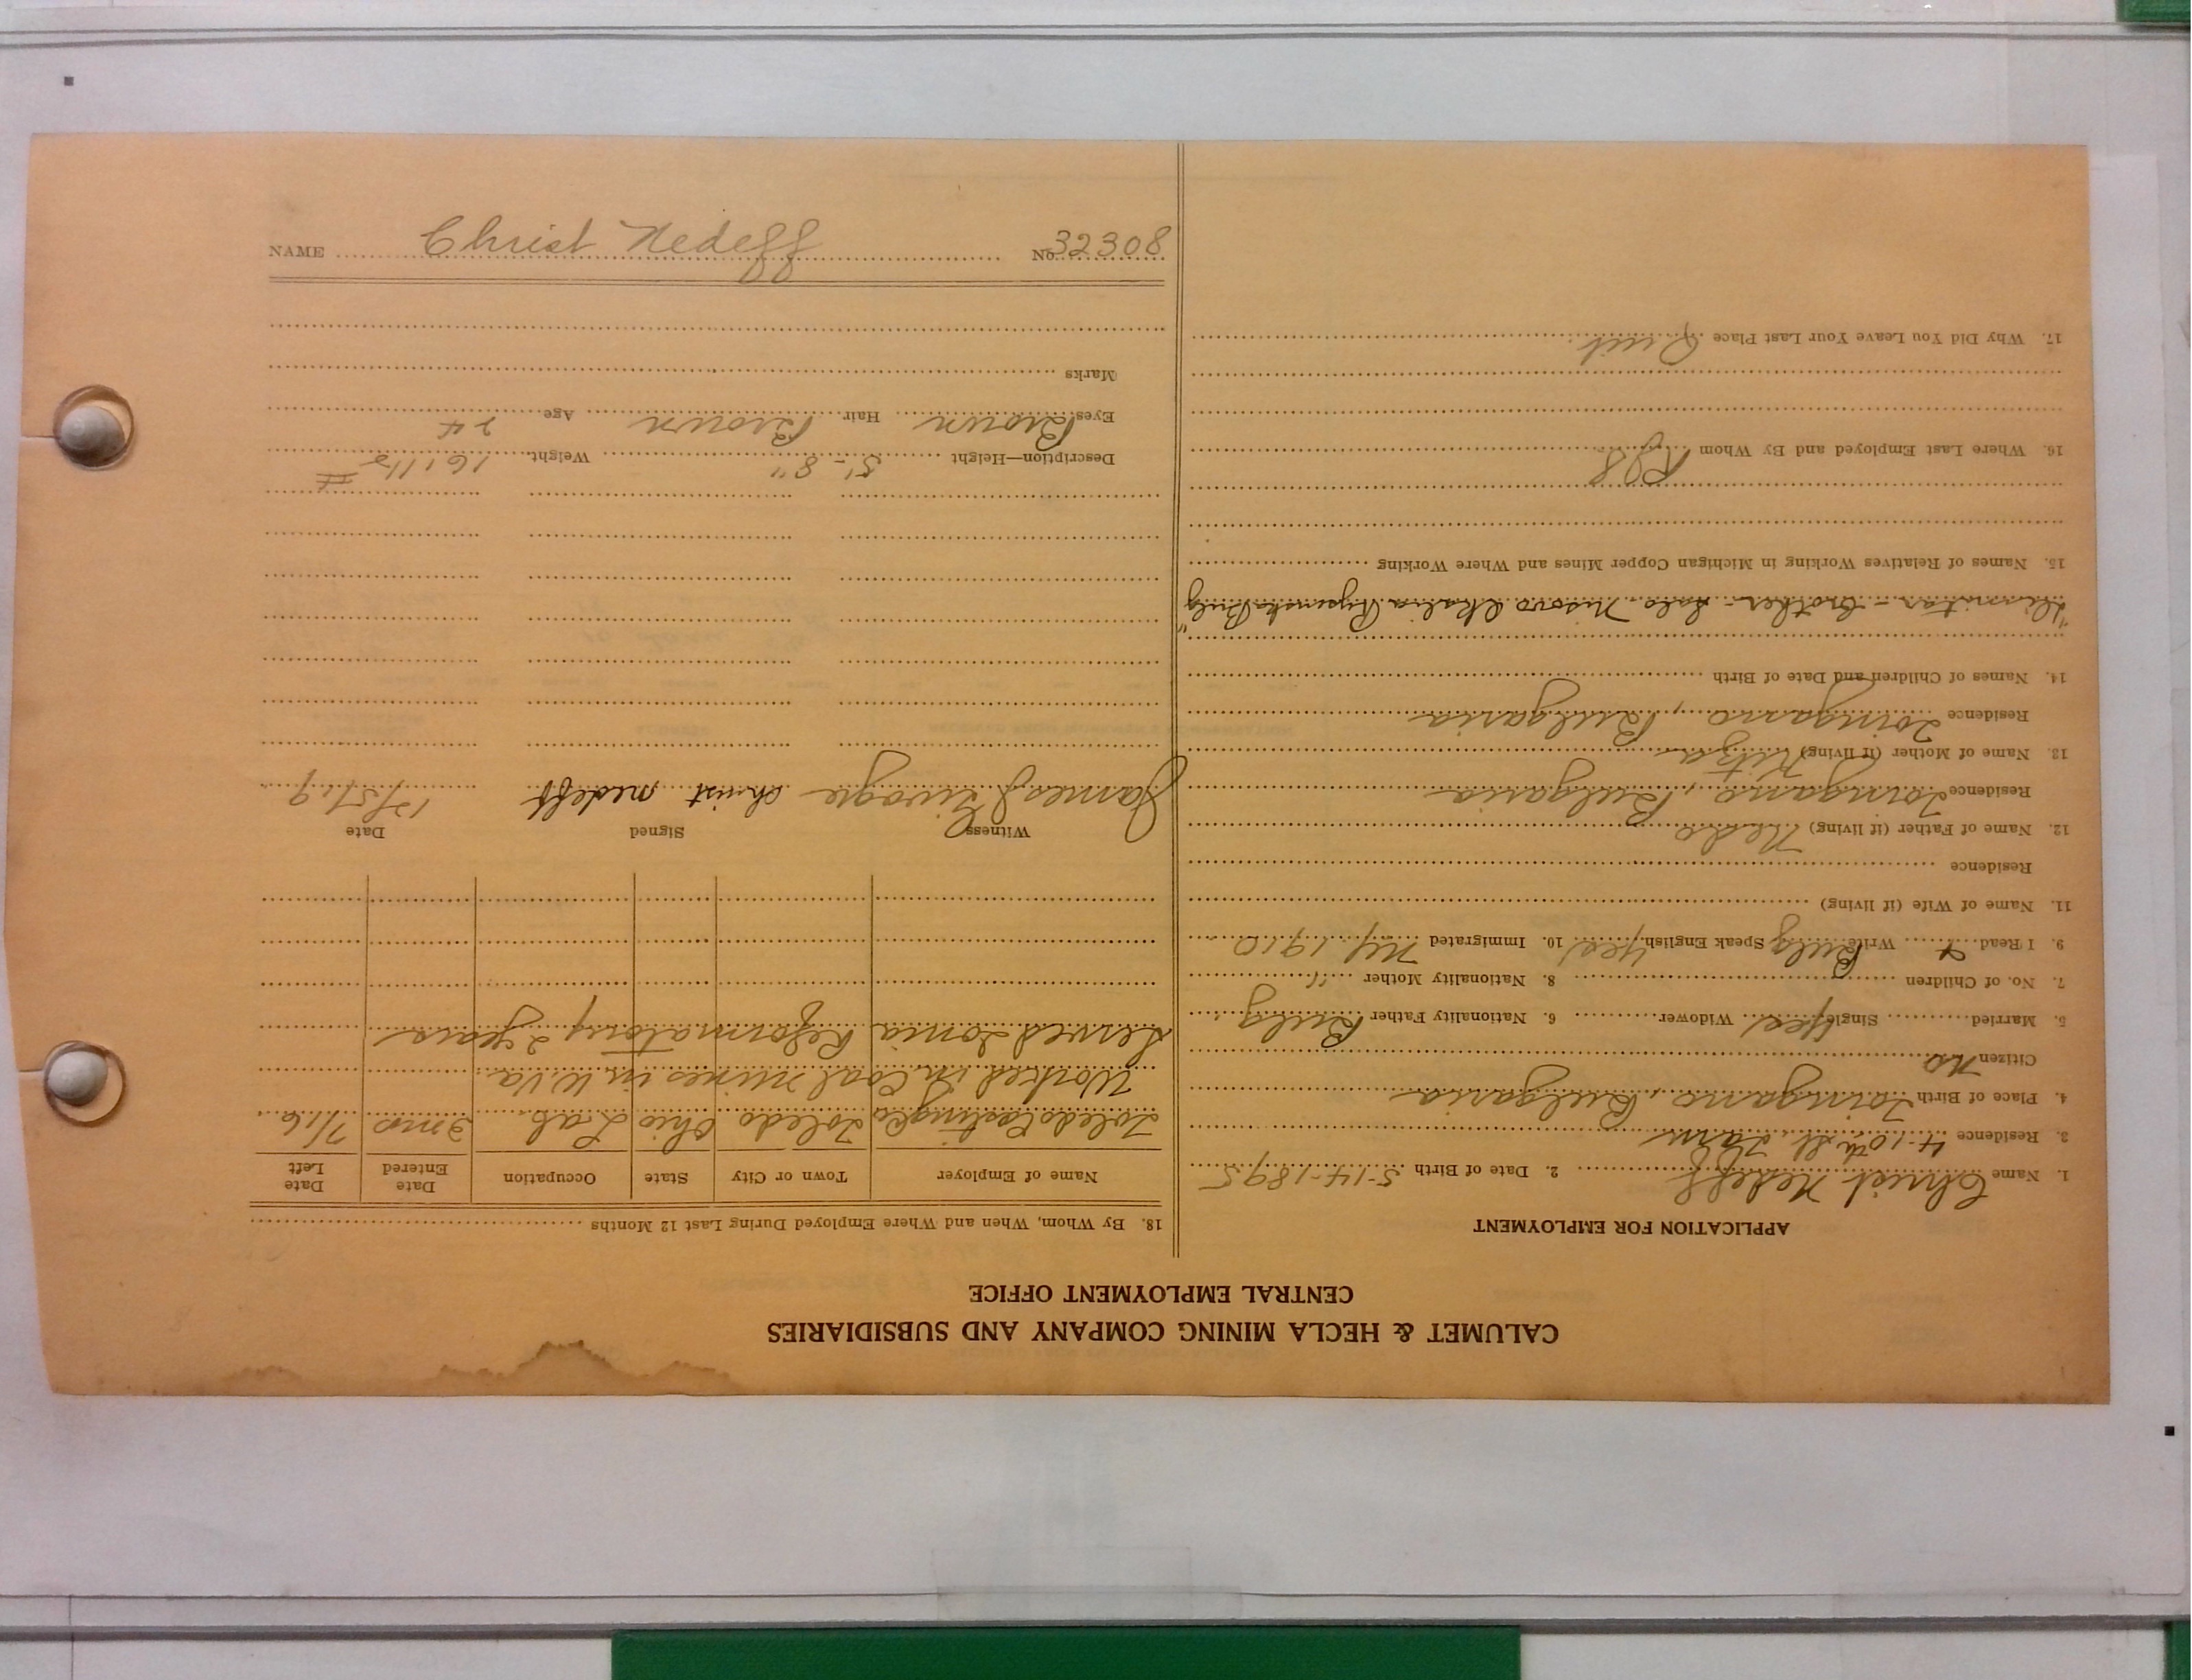 CALUMET & HECLA MINING COMPANY AND SUBSIDIARIES
CENTRAL EMPLOYMENT OFFICE
APPLICATION FOR EMPLOYMENT
1. Name Christ Nedeff 2. Date of Birth 5-14-1895
3. Residence 4-10th St.
4. Place of Birth Bulgaria
Citizen No
5. Married Single Yes Widower 6. Nationality Father Bulg
7. No. of Children 8. Nationality Mother "
9. I Read & Write Bulg Speak English Yes 10. Immigrated NY 1910
11. Name of Wife (if living)
Residence
12. Name of Father (if living) Nedo
Residence Bulgaria
13. Name of Mother (if living)
Residence Bulgaria
14. Names of Children and Date of Birth
"Dimitar - brother - Selo Bulg"
15. Names of Relatives Working in Michigan Copper Mines and Where Working
16. Where Last Employed and By Whom
17. Why Did You Leave Your Last Place Quit
18. By Whom, When and Where Employed During Last 12 Months
Name of Employer Town or City State Occupation Date Entered Date Left
Toledo Casting Co Toledo Ohio Lab. 3 mos 7/16
Worked in Coal mines in W. Va.
Served Ionia Reformatory 2 years
Witness Signed Date
James J christ nedeff 12/5/19
Description—Height 5'-8" Weight 161 1/2 #
Eyes Brown Hair Brown Age 24
Marks
NAME Christ Nedeff No. 32308